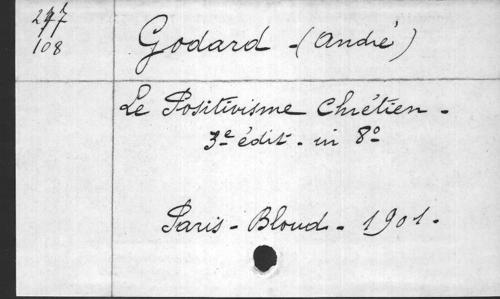 108
Godard - (André)
Le Positivisme Chrétien -
3e édit - in 8o
Paris - Bloud - 1901 -